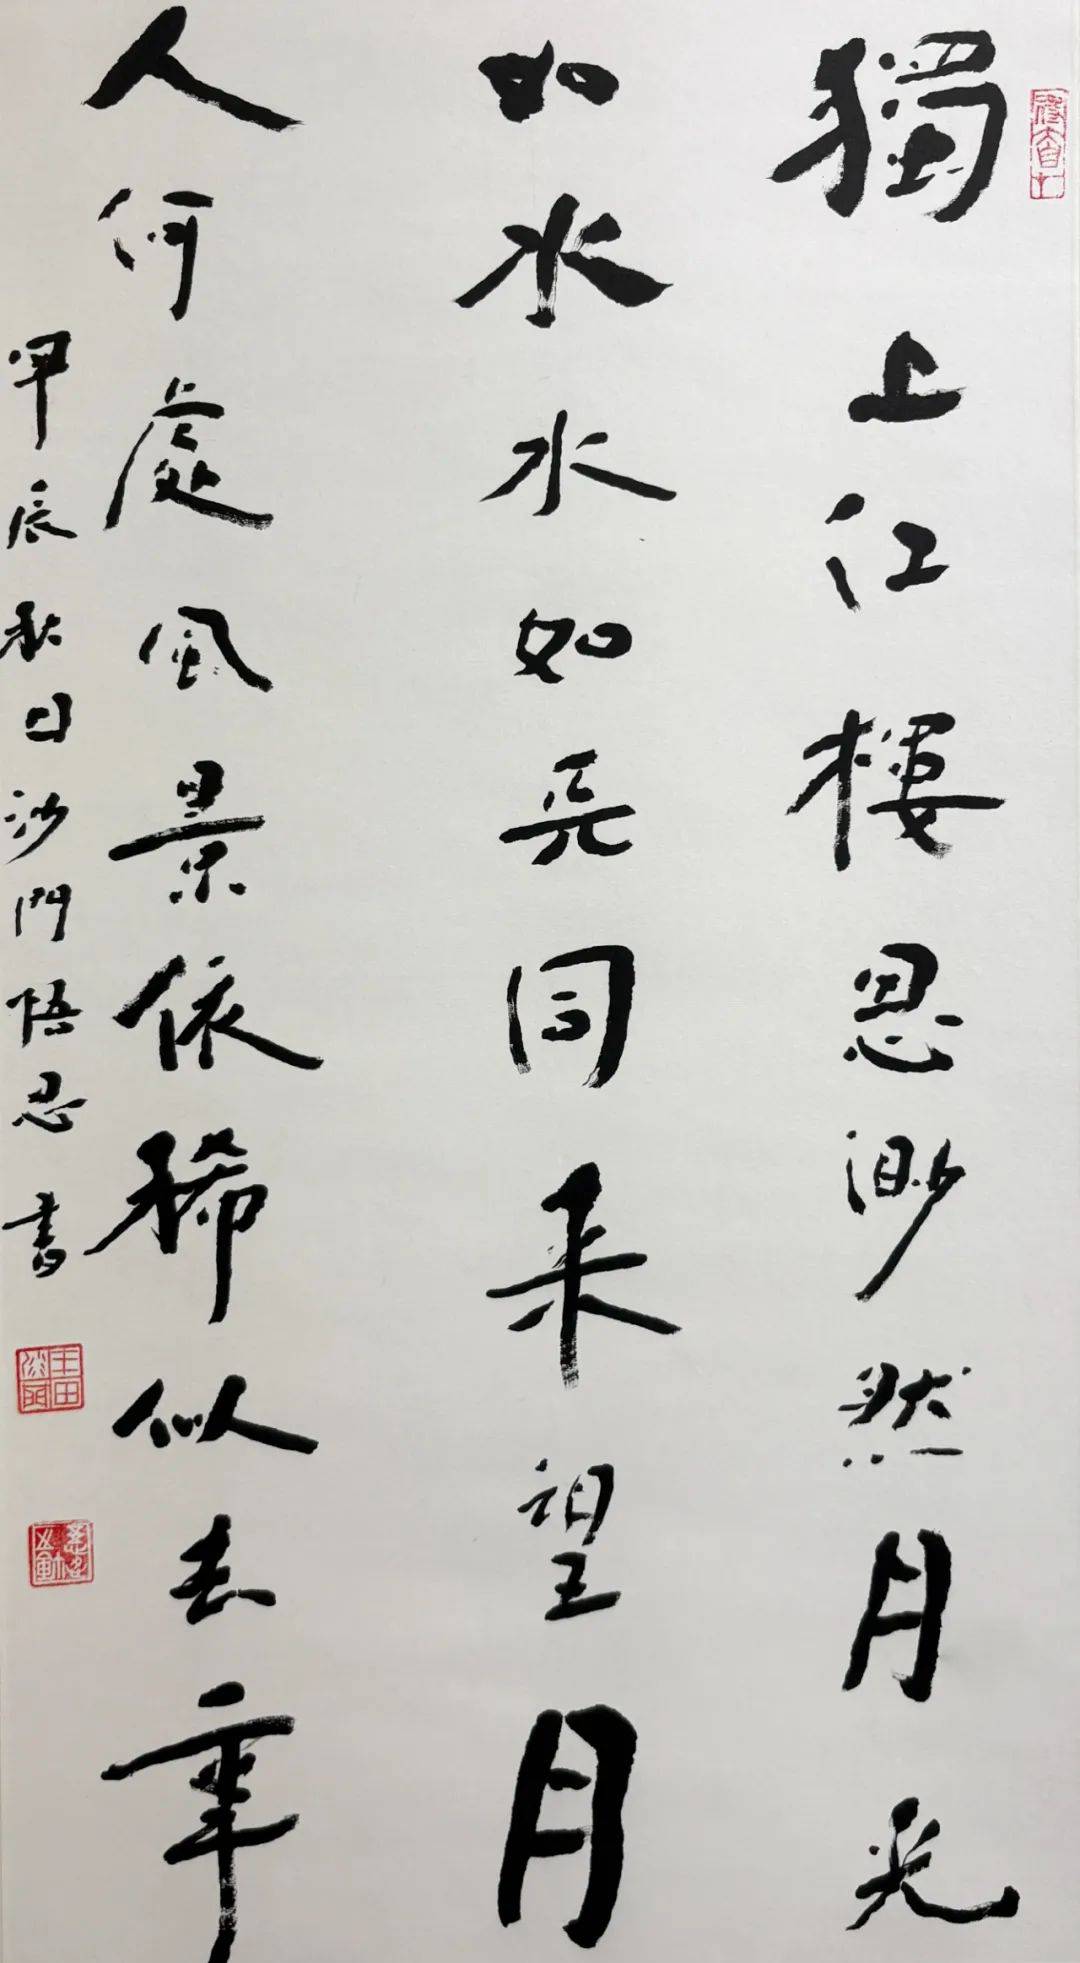 獨上江樓思渺然月光
如水水如天同来望月
人何處風景依稀似去年
甲辰秋日沙門悟忍書